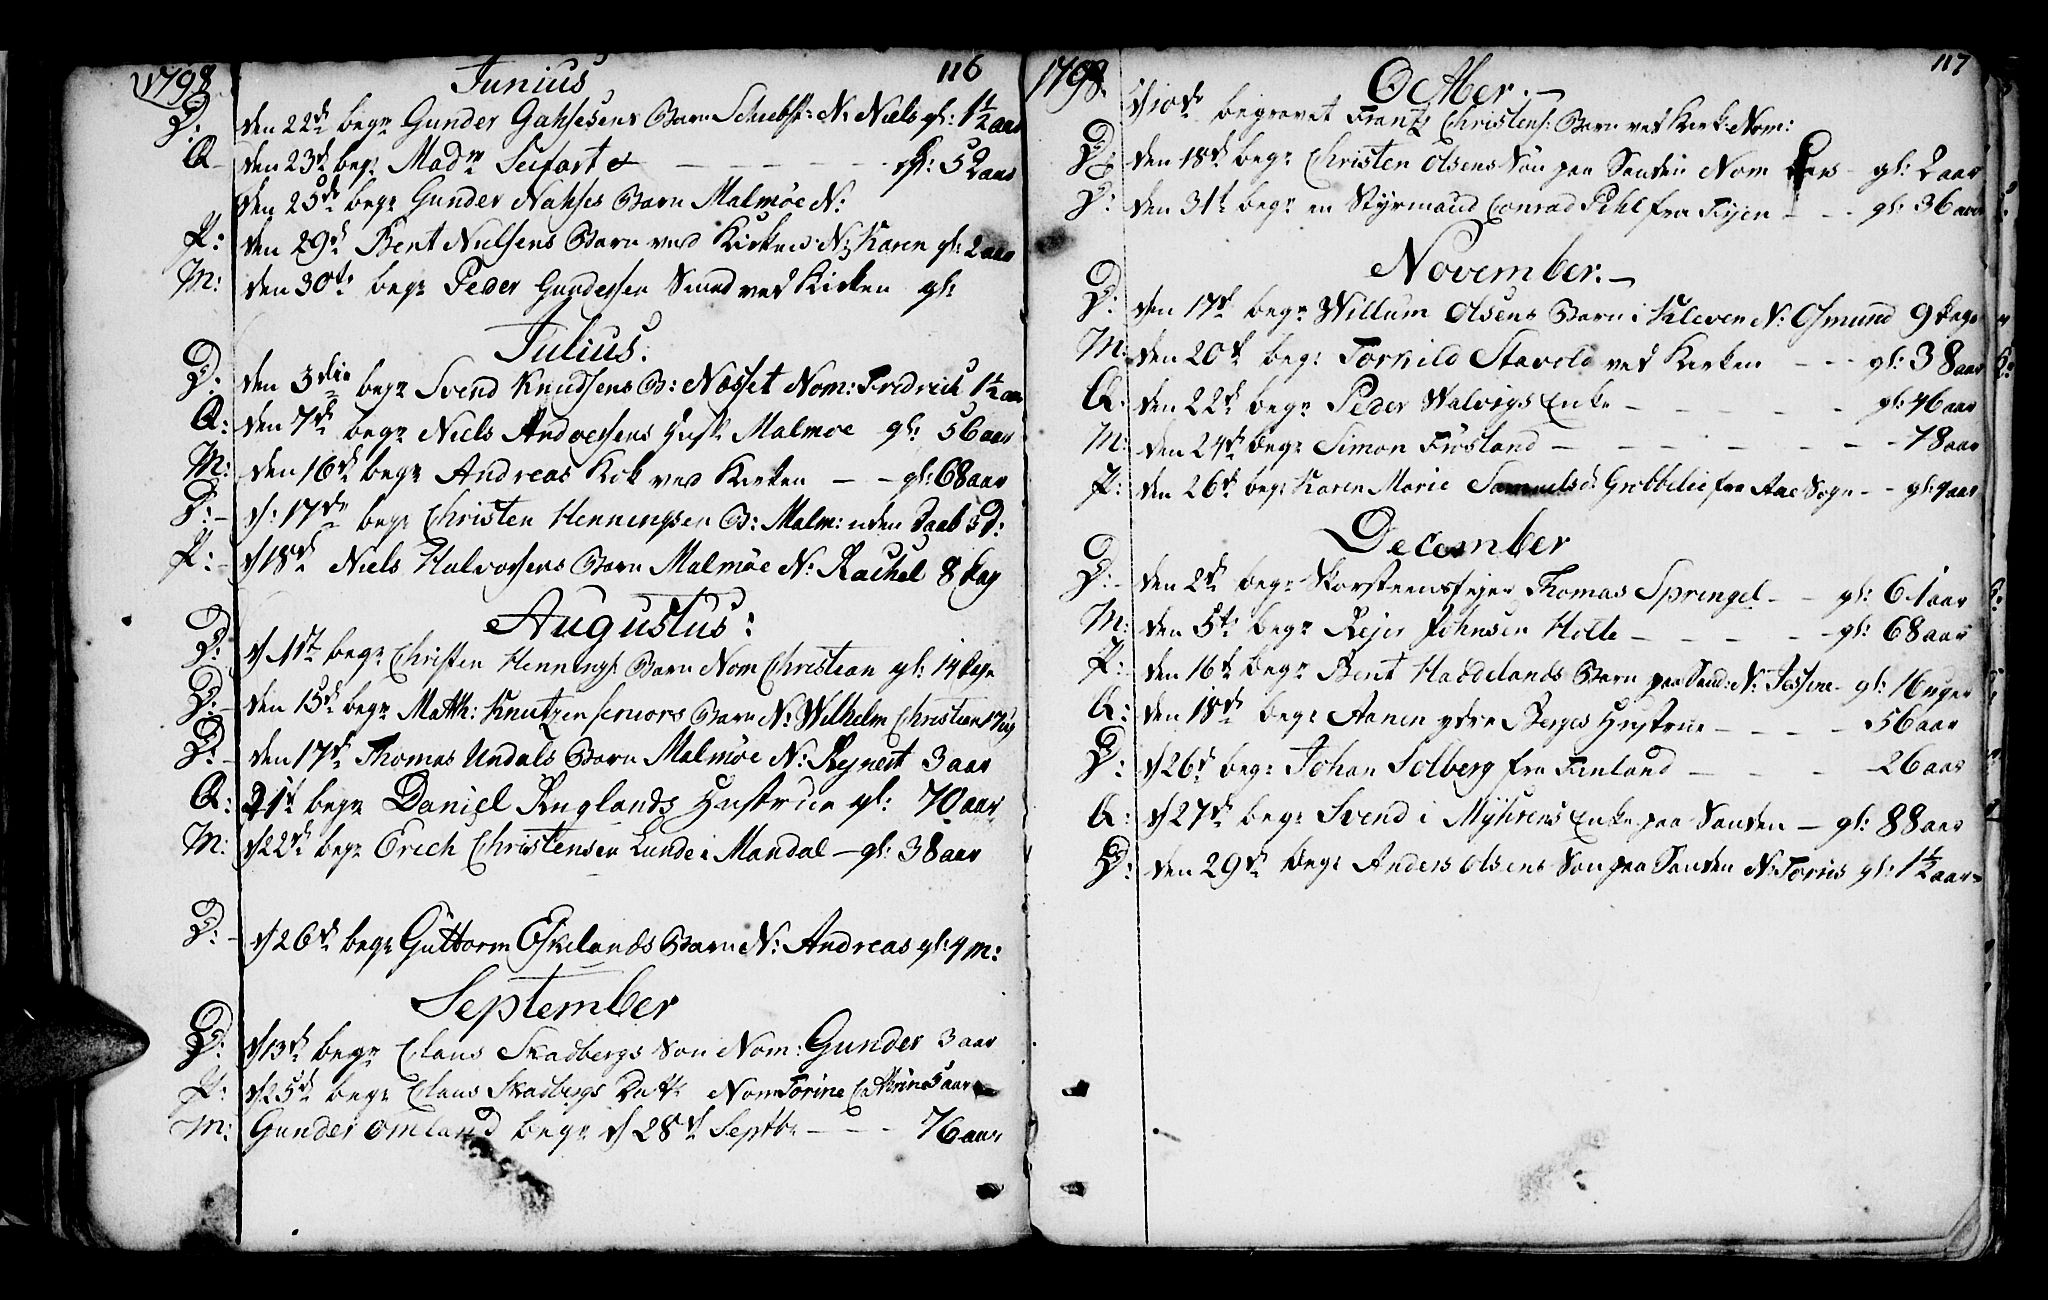 1798 Junius 116
D: den 22de begr Gunder Gahsesens Barn N: Niels gl: 1½ aar
Q - den 23de begr: Madm Seifart - - - - - gl: 52 aar
den 25de begr Gunder Nahses Barn Malmöe N:
P: den 29de Bent Nielsens Barn ved Kirken N: Karen gl: 2 aar
M: den 30te begr Peder Gundersen Smed ved Kirken gl:
Julius.
D: den 3die begr Svend Knudsens B: Næsset Nom: Fredrich 1½ aar
Q: den 7de begr Niels Andersens Hust: Malmoe gl: 56 aar
M: den 16de begr Andreas Kok ved Kirken - - gl: 68 aar
D: - d: 17de begr Christen Henningsen B: Malm: uden Daab 3 D:
P: - d 18de Niels Halvorsens Barn Malmöe N: Rachel 8 Dag
Augustus:
D: d 11te begr Christen Hennings: Barn Nom Christian gl: 14 Dage
D: - den 15de begr Matth: Knutzen seniors Barn N: Wilhelm Christian 17 ug
D: - den 17de Thomas Undals Barn Malmöe N: Rejnert 3 aar
Q: 21de begr Daniel Ruglands Hustrue gl: 70 aar
M: d 22de begr Erich Christensen Lunde i Mandal - gl: 38 aar
D: - d 26de begr Guttorm Eskelands Barn N: Andreas gl: 4 m:
September
D: d 13de begr Claus Skadbergs Søn Nom: Gunder 3 aar
P: d 25de begr Claus Skadbergs Datt: Nom Torine Cathrine 5 aar
M: Gunder Omland begr d 28de Septbr - - - 76 aar
1798. October. - 117
d 10de begravet Frantz Christens: Barn ved Kirk: Nom:
D: den 18de begr Christen Olsens Sön paa Sanden Nom Lars - gl: 2 aar
D: den 31te begr en Styrmand Conrad Pihl fra Fyen - - - gl: 36 aar
November. -
D: den 17de begr Willum Olsens Barn i Kleven N: Osmund 9 Dage
M: den 20de begr: Torkild Stavold ved Kirken - - - gl: 38 aar
Q: den 22de begr Peder Walvigs Enke - - - - - gl: 46 aar
M: den 24de begr Simon Frösland - - - - - - - 78 aar
P: den 26de begr Karen Marie Samuelsd: Grobbelie fra Aae Sogn - - gl: 4 aar
December
D: - den 2den begr Skorsteensfejer Thomas Sprengel - - gl: 61 aar
M: den 5te begr Rejer Johnsen Holte - - - - - gl: 68 aar
P: den 16de begr Bent Haddelands Barn paa Sand: N: - gl: 16 uger
Q: den 18de begr Aanen ydre Berges Hustrue - - - - 56 aar
D: d 26de begr: Johan Solberg fra Finland - - - - 26 aar
Q: d 27de begr Svend i Myhrens Enke paa Sanden - gl: 88 aar
D: den 29de begr Anders Olsens Sön paa Sanden N: Torris gl: 1½ aar